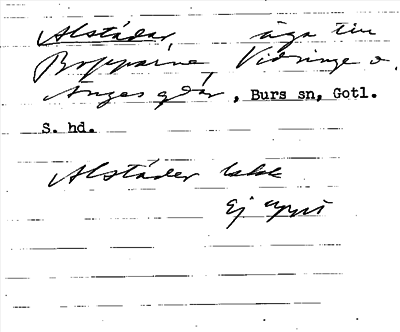 Alstäder, äga till
Bopparve, Vidringe o.
Anges gdar, Burs sn, Gotl.
S. hd.
Alstäder
Ej uppt